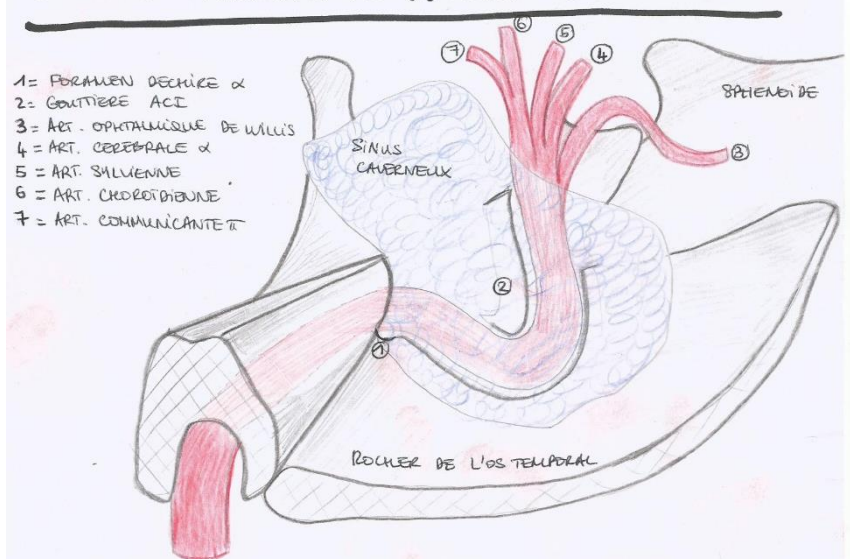 1= FORAMEN DECHIRE α
2= GOUTTIERE ACI
3= ART. OPHTALMIQUE DE WILLIS
4= ART. CEREBRALE α
5= ART. SYLVIENNE
6= ART. CHOROÏDIENNE
7= ART. COMMUNICANTE π
7
6
5
4
3
SPHENOÏDE
SINUS
CAVERNEUX
2
1
ROCHER DE L'OS TEMPORAL